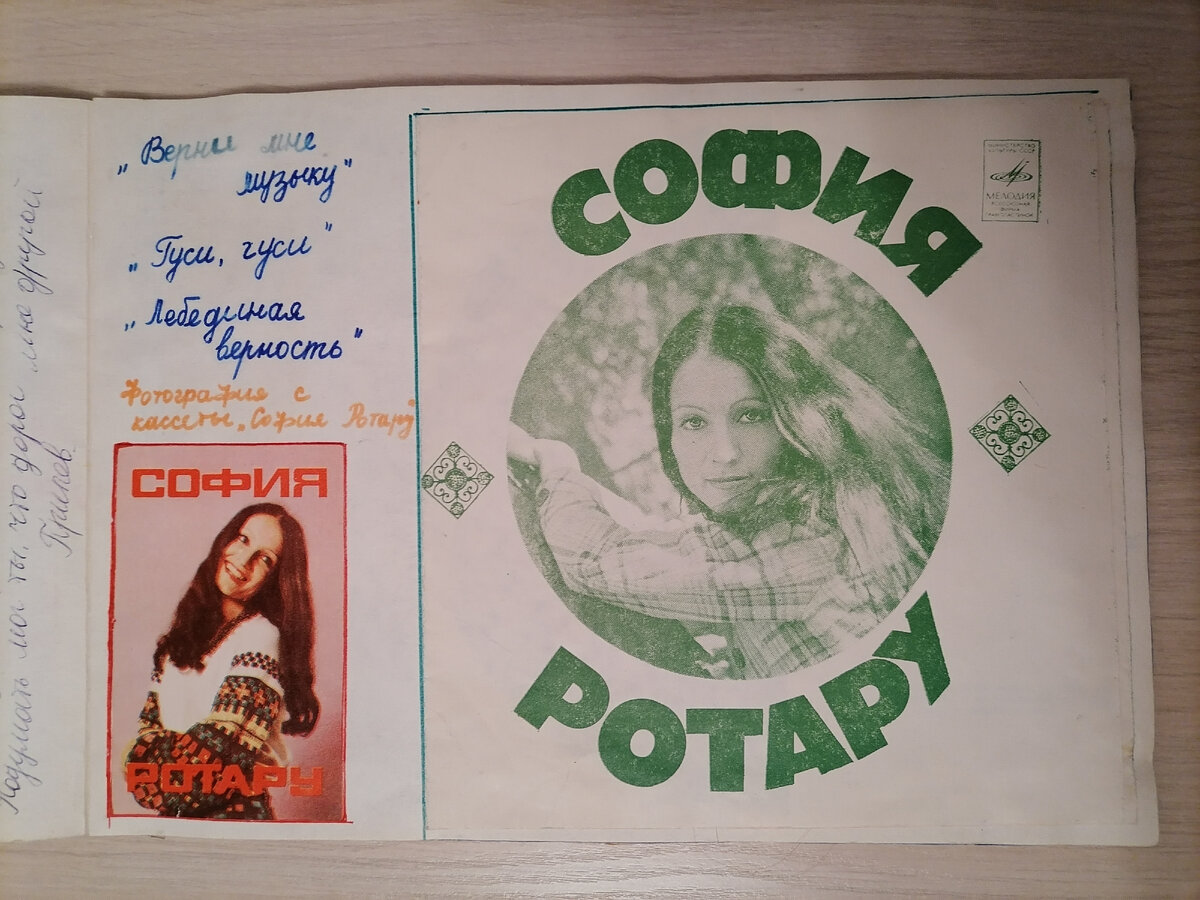 Подумать мог ты, что дорог мне другой
Припев.
„Верни мне
музыку"
„Гуси, гуси"
„Лебединая
верность"
Фотография с
кассеты „София Ротару"
СОФИЯ
РОТАРУ
СОФИЯ
РОТАРУ
МИНИСТЕРСТВО
КУЛЬТУРЫ СССР
МЕЛОДИЯ
ВСЕСОЮЗНАЯ
ФИРМА
ГРАМПЛАСТИНОК